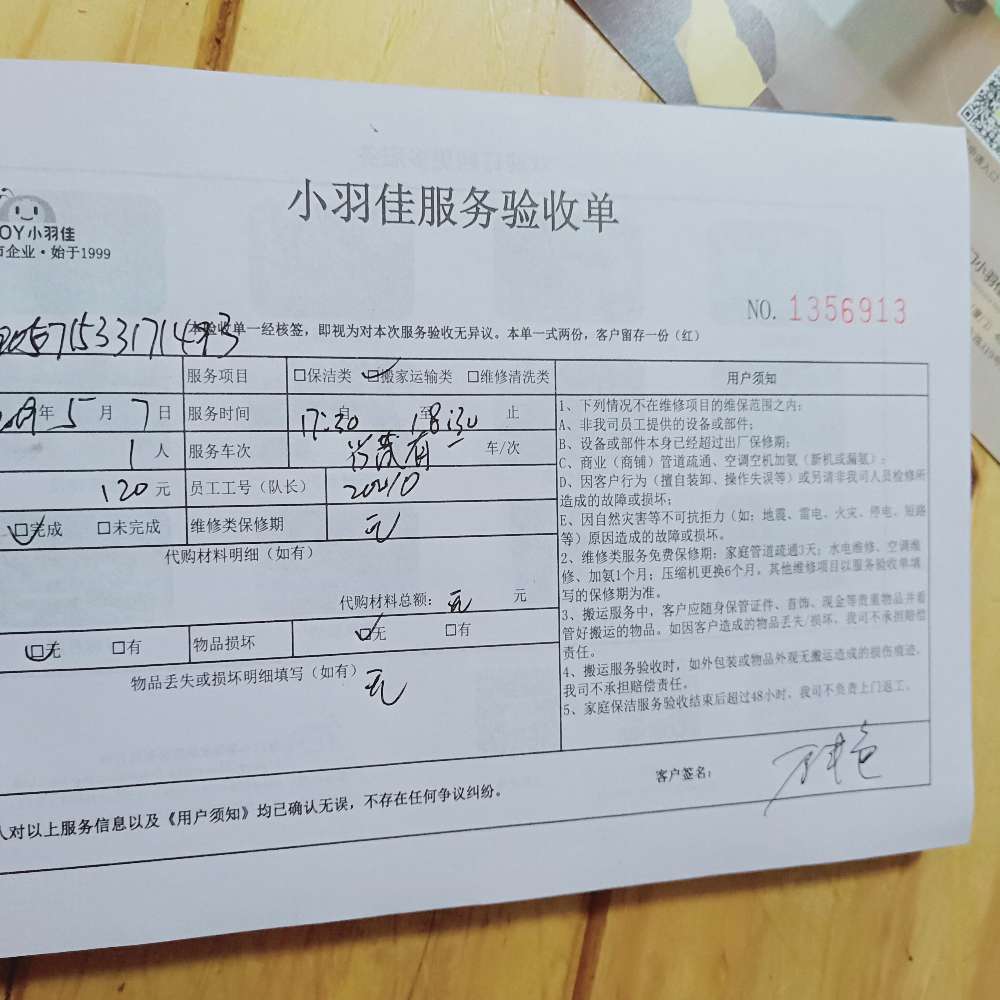 小羽佳服务验收单
OY小羽佳
市企业·始于1999
NO. 1356913
本验收单一经核签，即视为对本次服务验收无异议。本单一式两份，客户留存一份（红）
服务项目 □保洁类 □搬家运输类 □维修清洗类
年 5 月 7 日 服务时间 17:30 自 至 18:30 止
1 人 服务车次 车/次
120 元 员工工号（队长）
□完成 □未完成 维修类保修期 无
代购材料明细（如有）
代购材料总额： 无 元
□无 □有 物品损坏 □无 □有
物品丢失或损坏明细填写（如有） 无
用户须知
1、下列情况不在维修项目的维保范围之内：
A、非我司员工提供的设备或部件；
B、设备或部件本身已经超过出厂保修期；
C、商业（商铺）管道疏通、空调空机加氨（新机或漏氨）；
D、因客户行为（擅自装卸、操作失误等）或另请非我司人员检修所
造成的故障或损坏；
E、因自然灾害等不可抗拒力（如：地震、雷电、火灾、停电、短路
等）原因造成的故障或损坏。
2、维修类服务免费保修期：家庭管道疏通3天；水电维修、空调维
修、加氨1个月；压缩机更换6个月。其他维修项目以服务验收单填
写的保修期为准。
3、搬运服务中，客户应随身保管证件、首饰、现金等贵重物品并看
管好搬运的物品。如因客户造成的物品丢失/损坏，我司不承担赔偿
责任。
4、搬运服务验收时，如外包装或物品外观无搬运造成的损伤痕迹，
我司不承担赔偿责任。
5、家庭保洁服务验收结束后超过48小时，我司不负责上门返工。
人对以上服务信息以及《用户须知》均已确认无误，不存在任何争议纠纷。
客户签名：